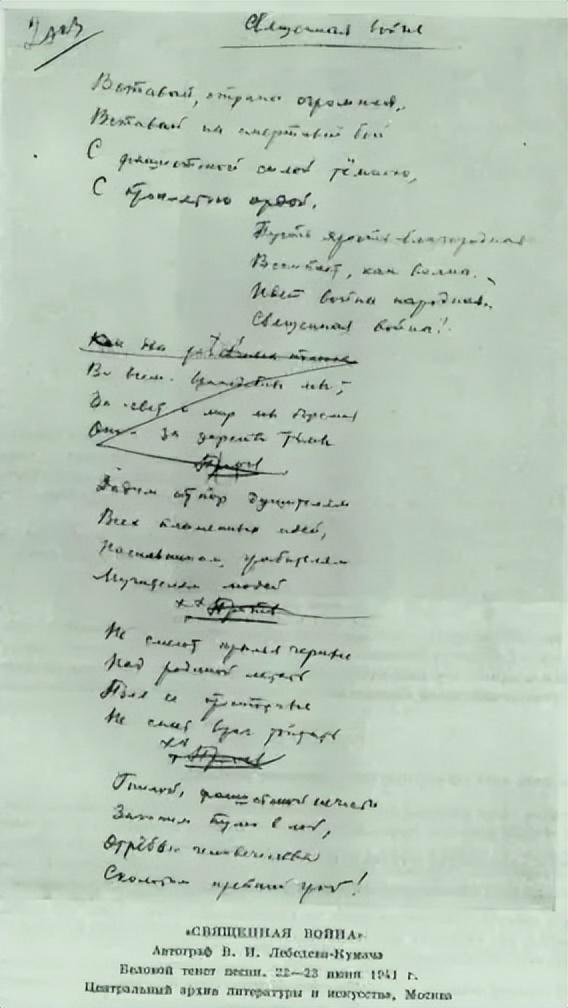 Священная война
Вставай, страна огромная,
Вставай на смертный бой
С фашистской силой тёмною,
С проклятою ордой.
Пусть ярость благородная
Вскипает, как волна.
Идет война народная,
Священная война!
Как два
Во всем враждебны мы;
За свет и мир мы боремся
Они за царство тьмы
Припев
Дадим отпор душителям
Всех пламенных идей,
Насильникам, грабителям
Мучителям людей
Припев
Не смеют крылья черные
Над родиной летать
Поля ее просторные
Не смеет враг топтать
Припев
Гнилой, фашистской нечисти
Загоним пулю в лоб,
Отребью человечества
Сколотим крепкий гроб!
«СВЯЩЕННАЯ ВОЙНА»
Автограф В. И. Лебедева-Кумача
Беловой текст песни. 22—23 июня 1941 г.
Центральный архив литературы и искусства, Москва